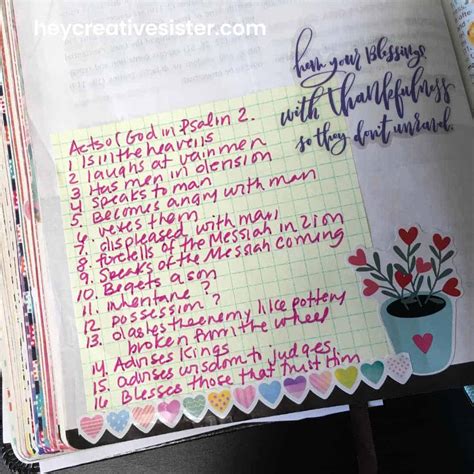 heycreativesister.com
hem your Blessings
with thankfulness
so they don't unravel.
Acts of God in Psalm 2.
1 Is in the heavens
2 laughs at vain men
3 Has men in
4 speaks to man
5. Becomes angry with man
6. vexes them
7. displeased with man
8 foretells of the Messiah in Zion
9. Speaks of the Messiah coming
10. Begets a son
11. inheritane ?
12 possession ?
13. dashes the enemy like pottery
broken from the wheel
14. Advises Kings
15. advises wisdom to judges
16 Blesses those that trust Him